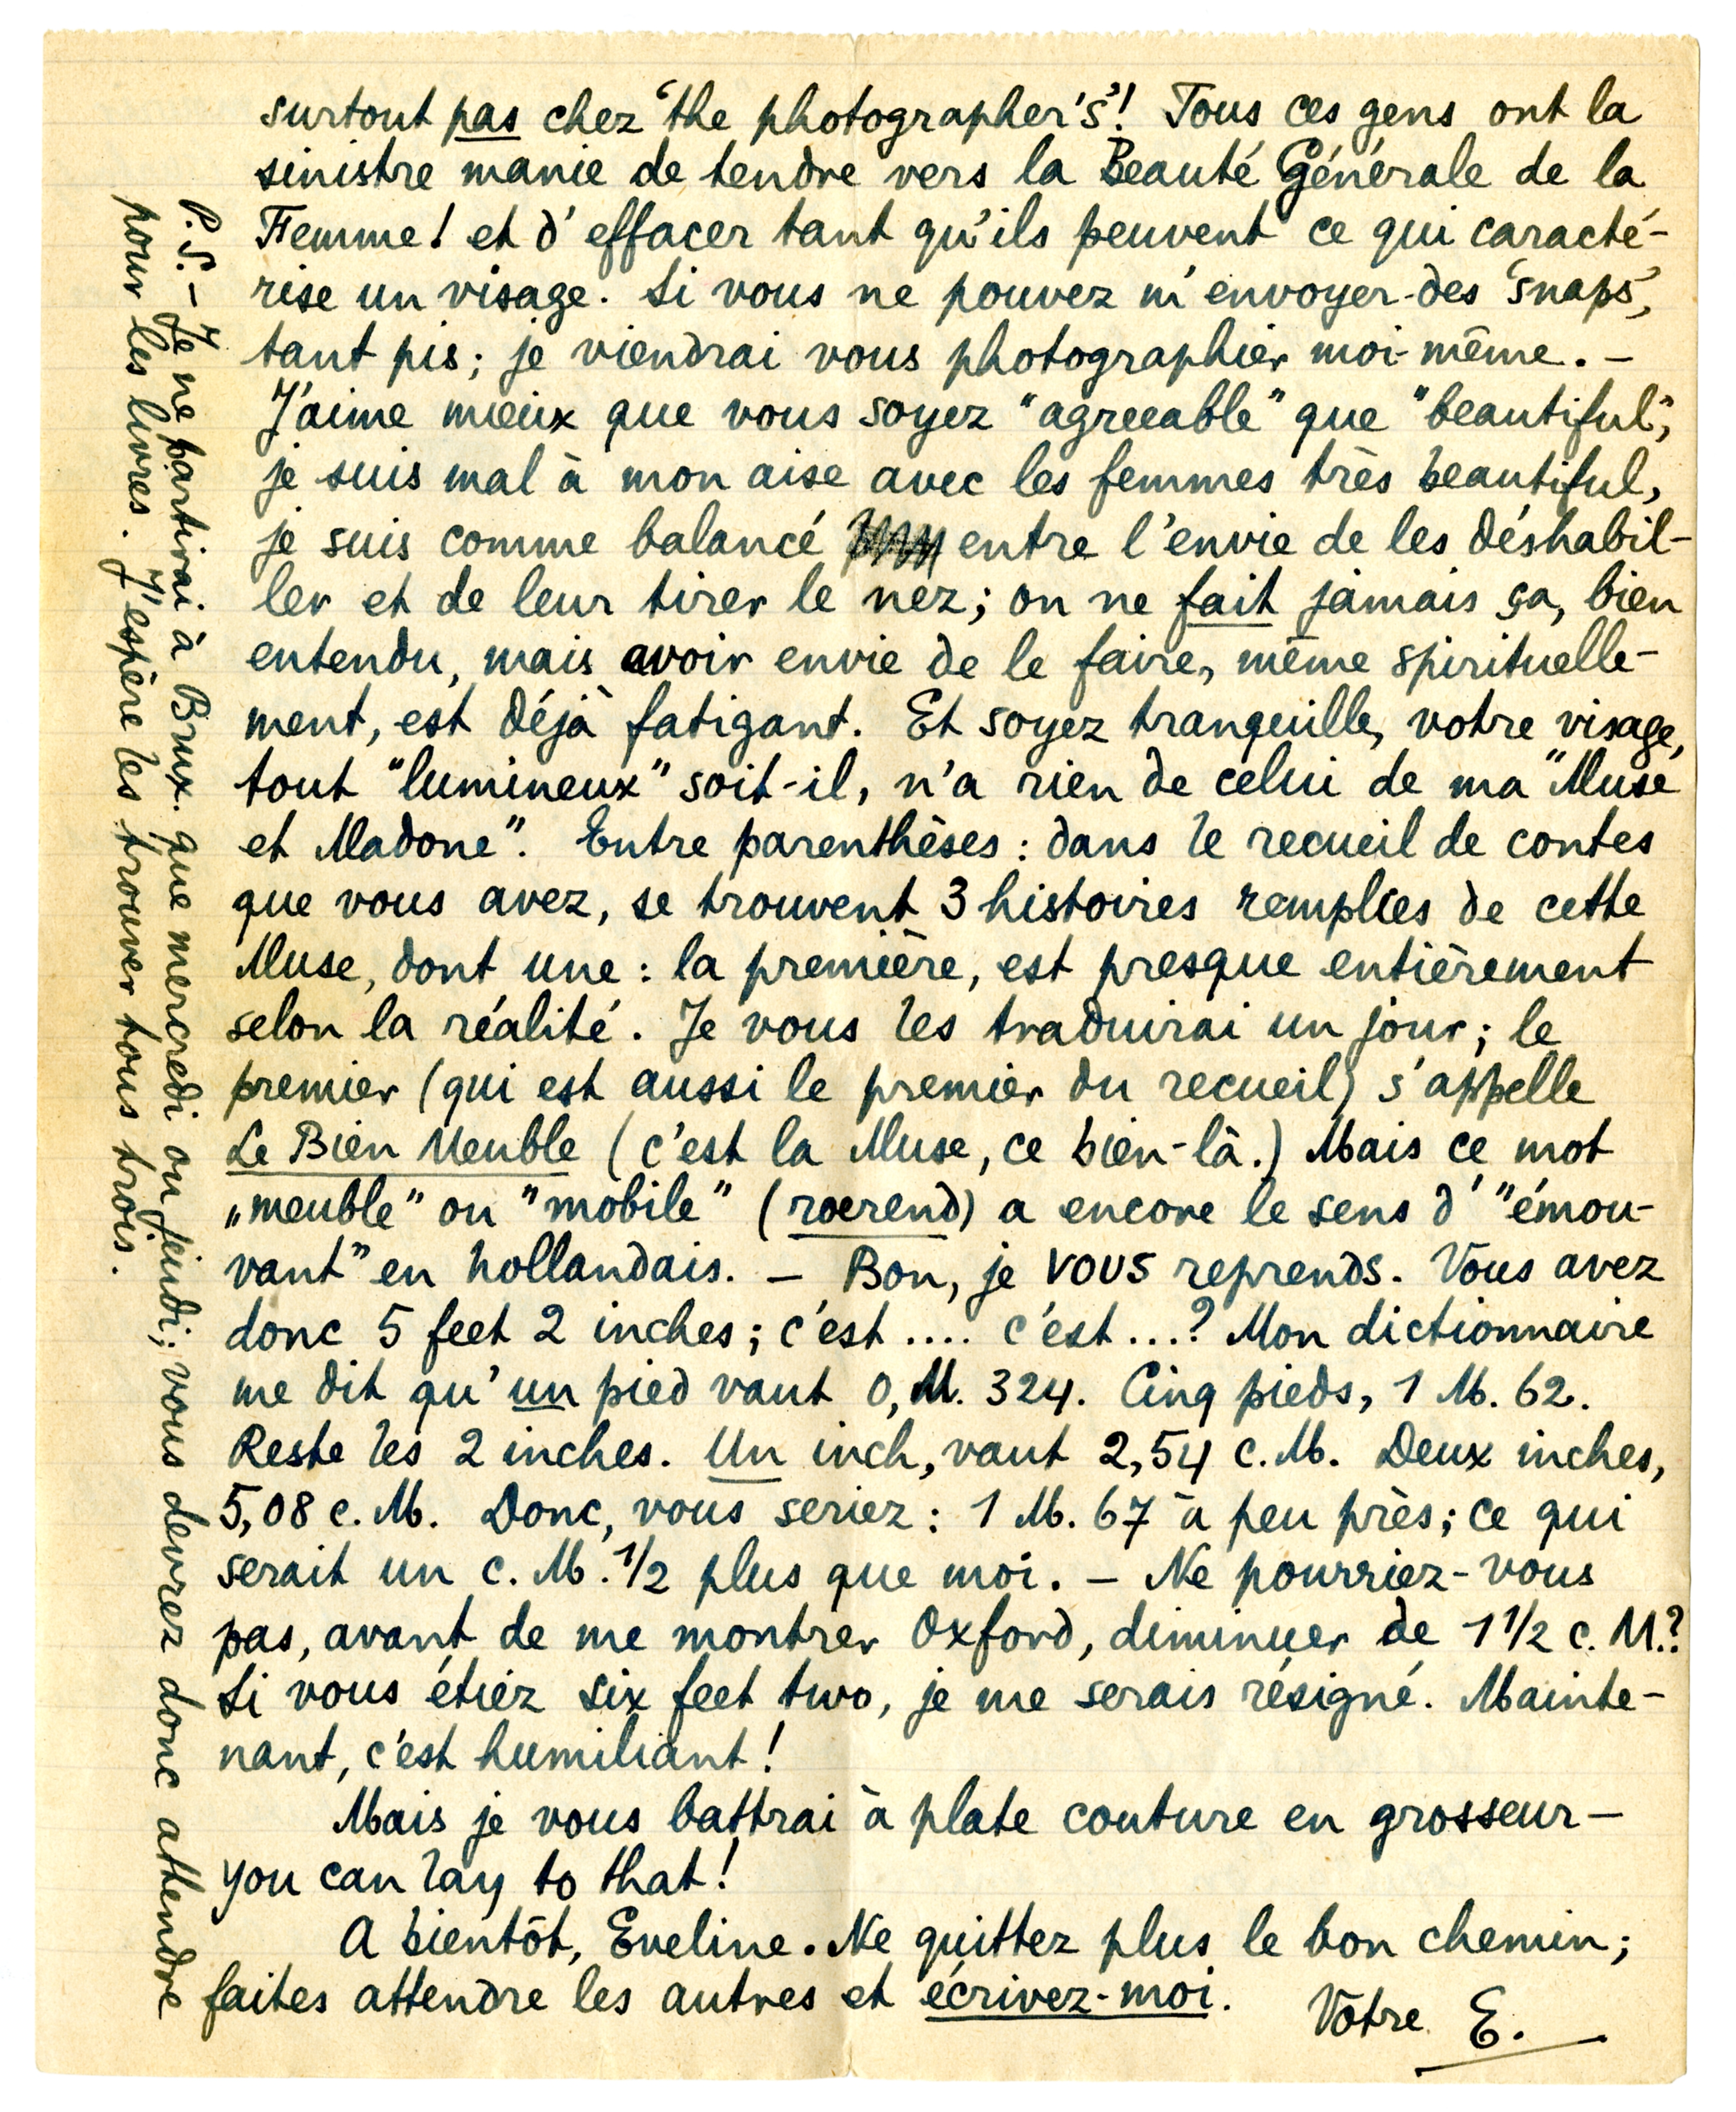 surtout pas chez 'the photographer's'! Tous ces gens ont la
sinistre manie de tendre vers la Beauté Générale de la
Femme! et d'effacer tant qu'ils peuvent ce qui caracté-
rise un visage. Si vous ne pouvez m'envoyer des 'snaps',
tant pis; je viendrai vous photographier moi-même. –
J'aime mieux que vous soyez "agreeable" que "beautiful";
je suis mal à mon aise avec les femmes très beautiful,
je suis comme balancé entre l'envie de les déshabil-
ler et de leur tirer le nez; on ne fait jamais ça, bien
entendu, mais avoir envie de le faire, même spirituelle-
ment, est déjà fatigant. Et soyez tranquille, votre visage,
tout "lumineux" soit-il, n'a rien de celui de ma "Muse
et Madone". Entre parenthèses: dans le recueil de contes
que vous avez, se trouvent 3 histoires remplies de cette
Muse, dont une: la première, est presque entièrement
selon la réalité. Je vous les traduirai un jour; le
premier (qui est aussi le premier du recueil) s'appelle
Le Bien Meuble (c'est la Muse, ce bien-là.) Mais ce mot
„meuble" ou "mobile" (roerend) a encore le sens d'"émou-
vant" en hollandais. – Bon, je vous reprends. Vous avez
donc 5 feet 2 inches; c'est .... c'est ...? Mon dictionnaire
me dit qu'un pied vaut 0, M. 324. Cinq pieds, 1 M. 62.
Reste les 2 inches. Un inch, vaut 2,54 c.M. Deux inches,
5,08 c.M. Donc, vous seriez: 1 M. 67 à peu près; ce qui
serait un c.M. 1/2 plus que moi. – Ne pourriez-vous
pas, avant de me montrer Oxford, diminuer de 1 1/2 c.M.?
Si vous étiez six feet two, je me serais résigné. Mainte-
nant, c'est humiliant!
Mais je vous battrai à plate couture en grosseur –
you can lay to that!
A bientôt, Eveline. Ne quittez plus le bon chemin;
faites attendre les autres et écrivez-moi.
Vôtre E.
P.S. – Je ne partirai à Brux. que mercredi ou jeudi; vous devrez donc attendre
pour les livres. J'espère les trouver tous trois.